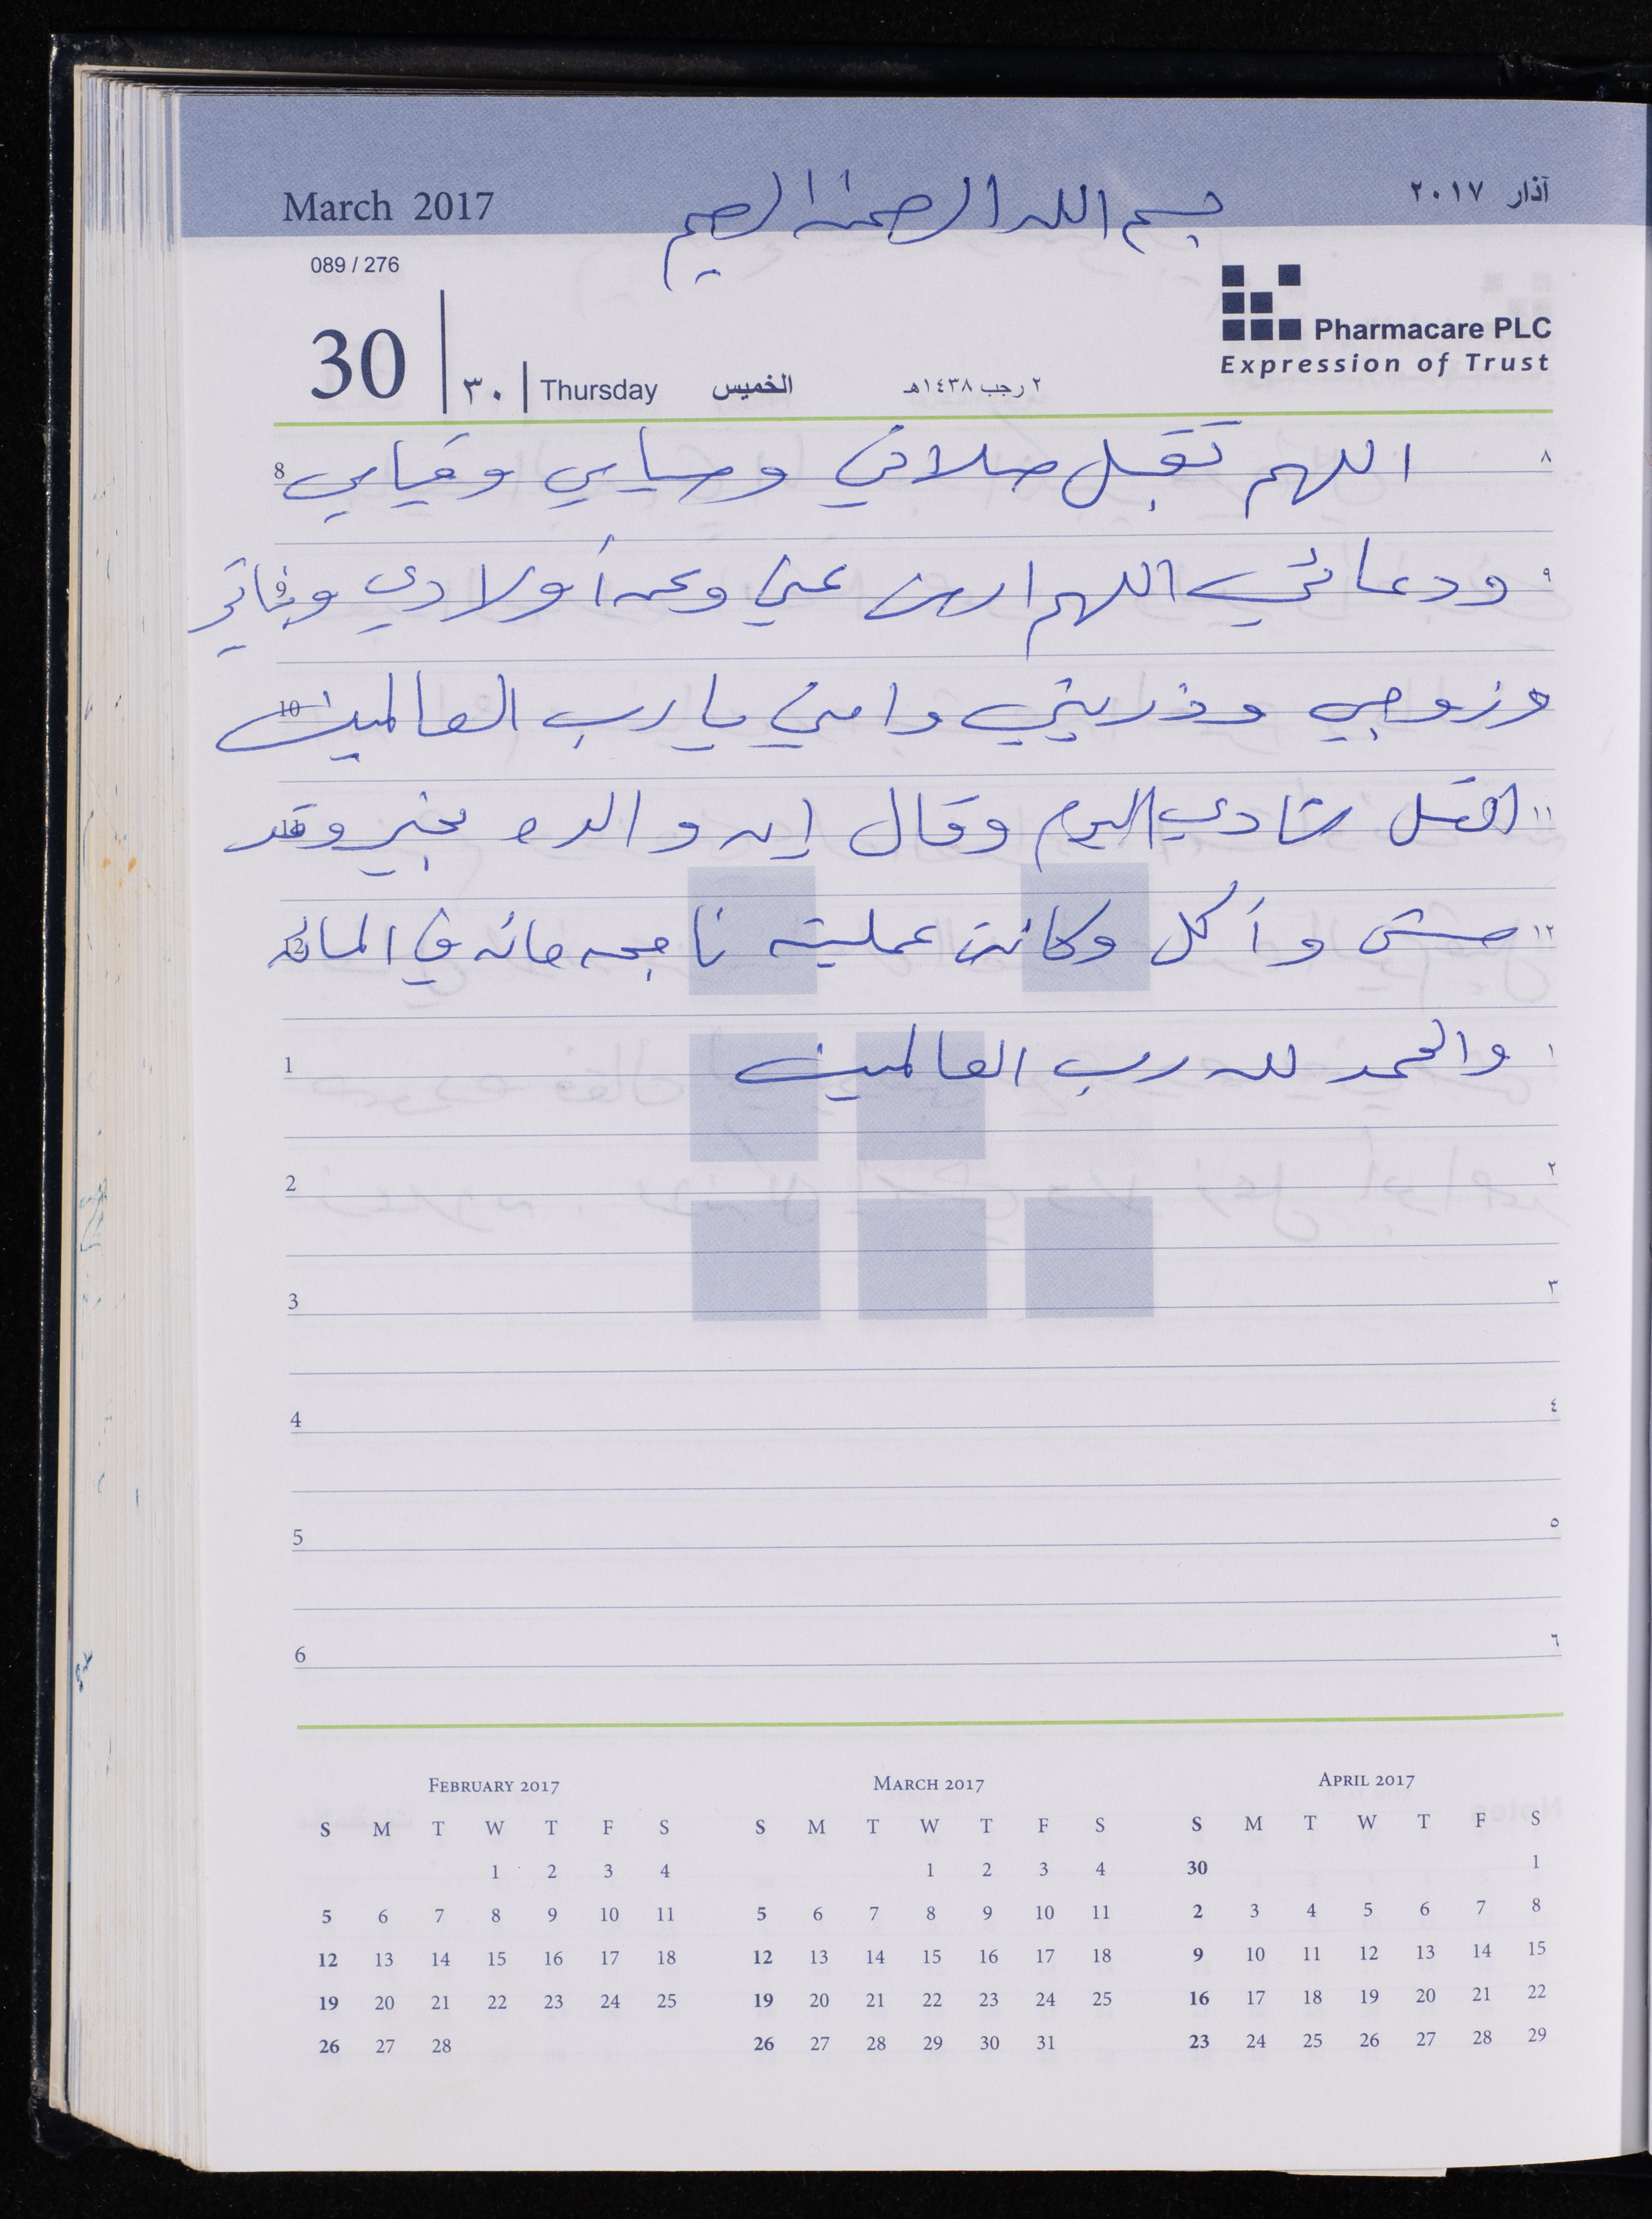 March 2017
بسم الله الرحمن الرحيم
آذار ٢٠١٧
089 / 276
30
٣٠
Thursday
الخميس
٢ رجب ١٤٣٨هـ
Pharmacare PLC
Expression of Trust
8 اللهم تقبل صلاتي وصيامي وقيامي ٨
9 ودعائي اللهم ارض عني وعن أولادي وبناتي ٩
10 وزوجي وذريتي وامي يا رب العالمين
11 اتصل شادي اليوم وقال إن والده بخير وقد ١١
12 مشى وأكل وكانت عمليته ناجحه مائه في المائه ١٢
1 والحمد لله رب العالمين ١
2 ٢
3 ٣
4 ٤
5 ٥
6 ٦
February 2017
S M T W T F S
1 2 3 4
5 6 7 8 9 10 11
12 13 14 15 16 17 18
19 20 21 22 23 24 25
26 27 28
March 2017
S M T W T F S
1 2 3 4
5 6 7 8 9 10 11
12 13 14 15 16 17 18
19 20 21 22 23 24 25
26 27 28 29 30 31
April 2017
S M T W T F S
30 1
2 3 4 5 6 7 8
9 10 11 12 13 14 15
16 17 18 19 20 21 22
23 24 25 26 27 28 29